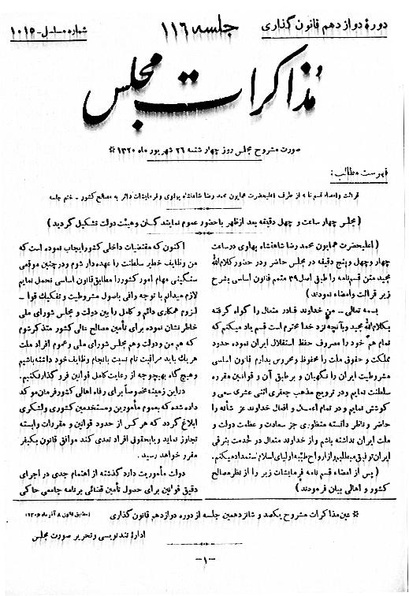 دورهٔ دوازدهم قانون گذاری
جلسه ۱۱۶
مذاکرات مجلس
صورت مشروح مجلس روز چهارشنبه ۲۶ شهریور ماه ۱۳۲۰ *
فهرست مطالب:
قرائت و امضاء قسم نامه از طرف اعلیحضرت همایون محمد رضا شاهنشاه پهلوی و فرمایشات دائر به مصالح کشور - ختم جلسه
(مجلس چهار ساعت و چهل دقیقه بعد از ظهر با حضور عموم نمایندگان و هیئت دولت تشکیل گردید)
(اعلیحضرت همایون محمد رضا شاهنشاه پهلوی در ساعت
چهار و چهل و پنج دقیقه در مجلس حاضر و در حضور کلام‌الله
مجید متن قسم‌نامه را طبق اصل ۳۹ متمم قانون اساسی بشرح
زیر قرائت و امضاء نمودند)
بسمه تعالی - من خداوند قادر متعال را گواه گرفته
بکلام‌الله مجید و بآنچه نزد خدا محترم است قسم یاد میکنم که
تمام هم خود را مصروف حفظ استقلال ایران نموده حدود
مملکت و حقوق ملت را محفوظ و محروس بدارم قانون اساسی
مشروطیت ایران را نگهبان و بر طبق آن و قوانین مقرره
سلطنت نمایم و در ترویج مذهب جعفری اثنی عشری سعی و
کوشش نمایم و در تمام اعمال و افعال خداوند عز شأنه را
حاضر و ناظر دانسته منظوری جز سعادت و عظمت دولت و
ملت ایران نداشته باشم و از خداوند متعال در خدمت بترقی
ایران توفیق میطلبم و از ارواح طیبهٔ اولیای اسلام استمداد میکنم.
(پس از امضاء قسم نامه فرمایشات زیر را از نظر مصالح
کشور و اهالی بیان فرمودند)
اکنون که مقتضیات داخلی کشور ایجاب نموده است که
من وظایف خطیر سلطنت را عهده‌دار شوم و در چنین موقعی
سنگینی مهام امور کشور را مطابق قانون اساسی تحمل نمایم
لازم میدانم با توجه وافی باصول مشروطیت و تفکیک قوا -
لزوم همکاری دائم و کامل را بین دولت و مجلس شورای ملی
خاطر نشان نموده برای تأمین مصالح عالی کشور متذکر شوم
که هم من و دولت و هم مجلس شورای ملی و عموم افراد ملت
هریک باید مراقبت تام نسبت بانجام وظایف خود داشته باشیم
و هیچ گاه بهیچوجه از رعایت کامل قوانین فرو گذار نکنیم.
در این زمینه خصوصاً برای رفاه اهالی کشور فرمان مؤکد
داده شده که بعموم مأمورین و مستخدمین کشوری و لشکری
ابلاغ گردد که هر کس از حدود قوانین و مقررات وابسته
تجاوز نماید و یا بحقوق افراد تعدی کند موافق قانون بکیفر
مقرر خواهد رسید.
دولت مأموریت دارد گذشته از اهتمام جدی در اجرای
دقیق قوانین برای حصول تأمین قضائی برنامه جامعی حاکی
* عین مذاکرات مشروح یکصد و شانزدهمین جلسه از دوره دوازدهم قانون گذاری
ادارهٔ تند نویسی و تحریر صورت مجلس
-۱-